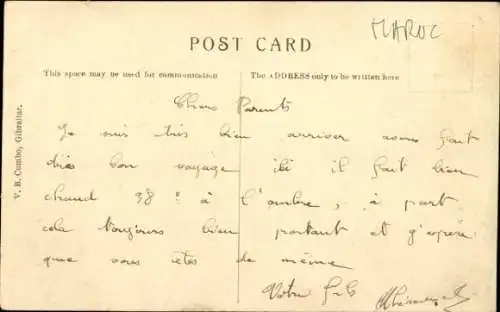 MAROC
POST CARD
This space may be used for communication
The ADDRESS only to be written here
V. B. Cumbo, Gibraltar.
Chers Parents
Je suis très bien arriver avons fait
très bon voyage ici il fait bien
chaud 38° à l'ombre, à part
cela toujours bien portant et j'espère
que vous êtes de même
Votre fils